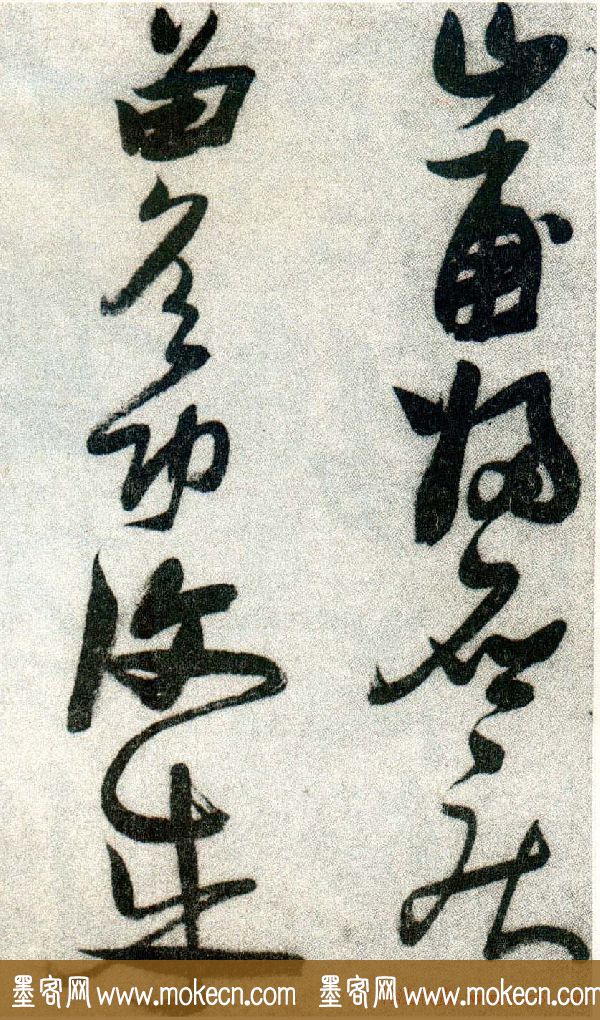 山甫歸應疾
留侯功復成
墨客网 www.mokecn.com 墨客网 www.mokecn.com